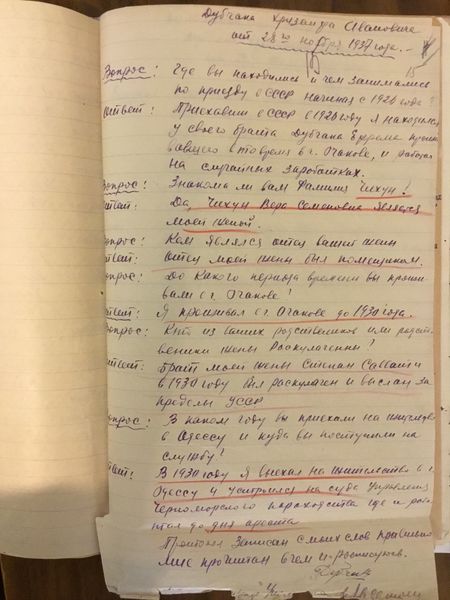 Дубчака Хризанфа Ивановича
от 28го ноября 1937 года.
Вопрос: Где вы находились и чем занимались
по приезду в СССР начиная с 1926 года?
Ответ: Приехавши в СССР в 1926 году я находился
у своего брата Дубчака Ефрема прожи
вавшего в то время в г. Очакове, и работал
на случайных заработках.
Вопрос: Знакома ли вам фамилия Чехун!
Ответ: Да, Чехун Вера Семеновна является
моей женой.
Вопрос: Кем являлся отец вашей жены
Ответ: Отец моей жены был помещиком.
Вопрос: До какого периода времени вы прожи-
вали в г. Очакове!
Ответ: Я проживал в г. Очакове до 1930 года.
Вопрос: Кто из ваших родственников или родст-
венники жены раскулаченны!
Ответ: Брат моей жены Степан
в 1930 году был раскулачен и выслан за
пределы УССР
Вопрос: В каком году вы приехали на жительство
в Одессу и куда вы поступили на
службу!
Ответ: В 1930 году я выехал на жительство в г.
Одессу и устроился на суда Управления
Черноморского пароходства где и рабо-
тал до дня ареста
Протокол записан с моих слов правильно
мне прочитан в чем и расписуюсь.